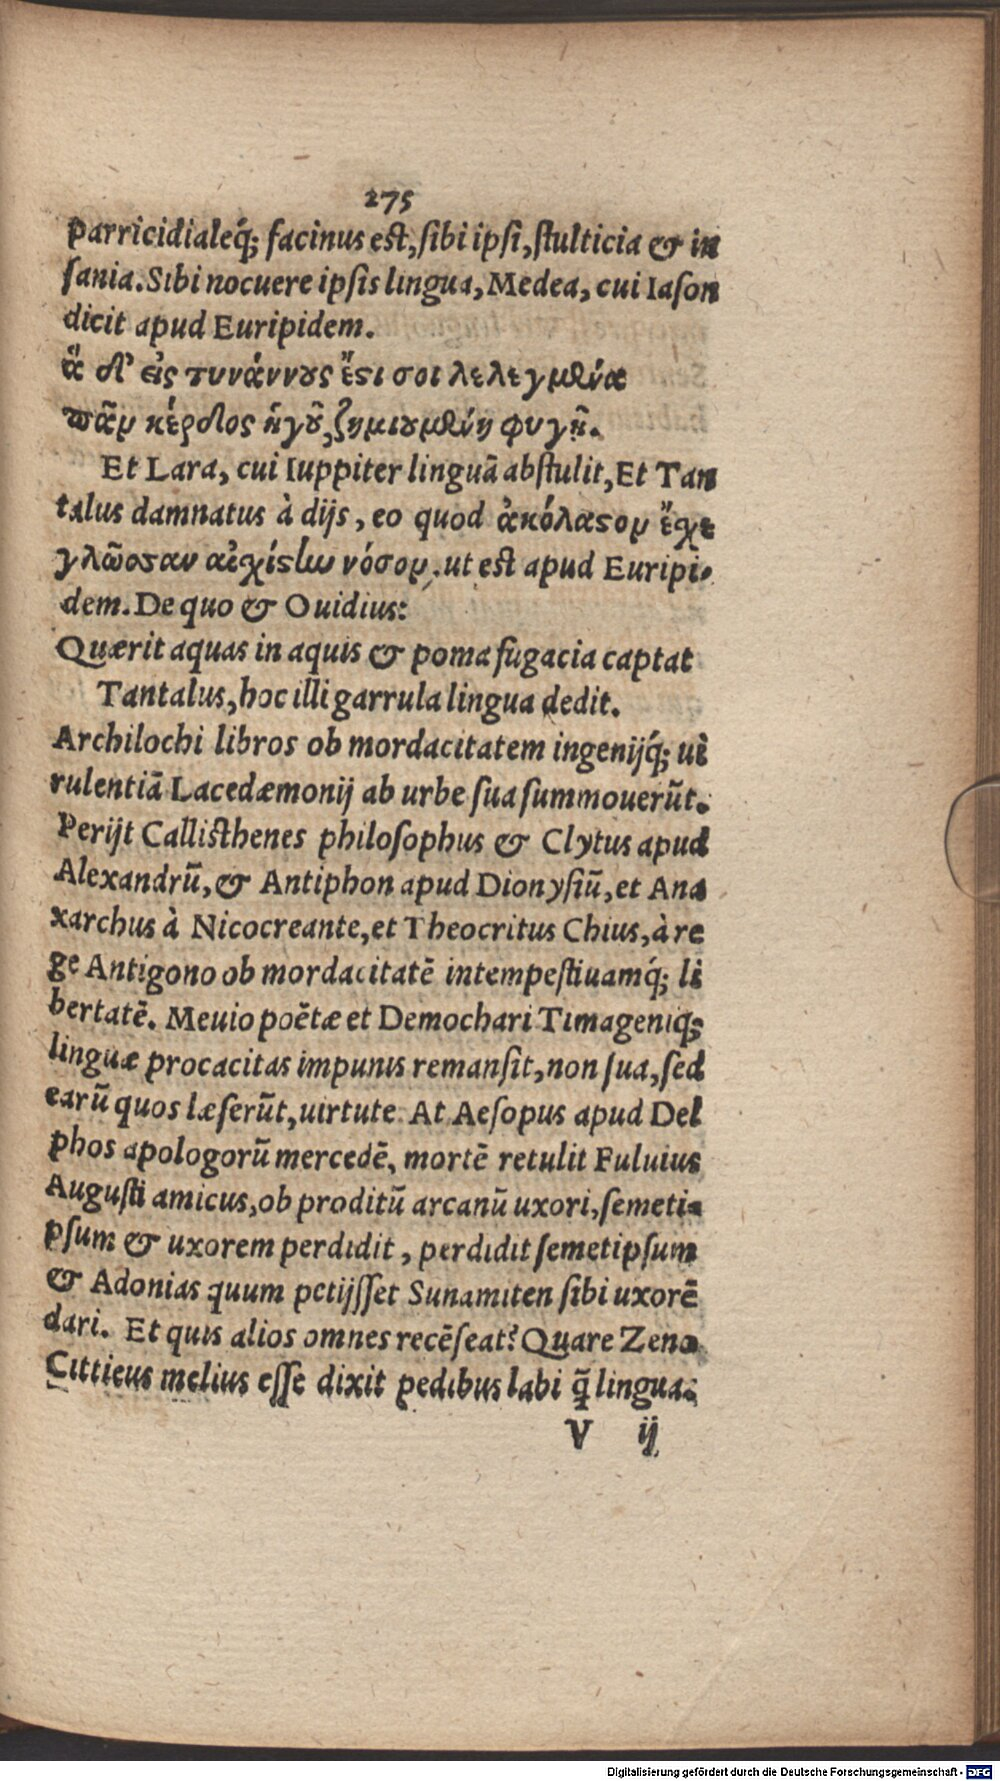 275
parricidialeq́; facinus est, sibi ipsi, stulticia & in
sania. Sibi nocuere ipsis lingua, Medea, cui Iason
dicit apud Euripidem.
ἃ δ' εἰς τυνάννους ἔςι σοι λελεγμένα
πᾶν κέρδος ἡγοῦ, ζημιουμένη φυγῇ.
Et Lara, cui Iuppiter linguā abstulit, Et Tan
talus damnatus à dijs, eo quod ἀκόλαςον ἔχε
γλῶσσαν αἰχίςην νόσον, ut est apud Euripi-
dem. De quo & Ouidius:
Quærit aquas in aquis & poma fugacia captat
Tantalus, hoc illi garrula lingua dedit.
Archilochi libros ob mordacitatem ingenijq́; ui
rulentiā Lacedæmonij ab urbe sua summouerūt.
Perijt Callisthenes philosophus & Clytus apud
Alexandrū, & Antiphon apud Dionysiū, et Ana
xarchus à Nicocreante, et Theocritus Chius, à re
ge Antigono ob mordacitatē intempestiuamq́; li
bertatē. Meuio poëtæ et Demochari Timageniq;
linguæ procacitas impunis remansit, non sua, sed
earū quos læserūt, uirtute. At Aesopus apud Del
phos apologorū mercedē, mortē retulit Fuluius
Augusti amicus, ob proditū arcanū uxori, semeti-
psum & uxorem perdidit, perdidit semetipsum
& Adonias quum petijsset Sunamiten sibi uxorē
dari. Et quis alios omnes recēseat? Quare Zeno
Cittieus melius esse dixit pedibus labi q̄ lingua:
V ij
Digitalisierung gefördert durch die Deutsche Forschungsgemeinschaft - DFG